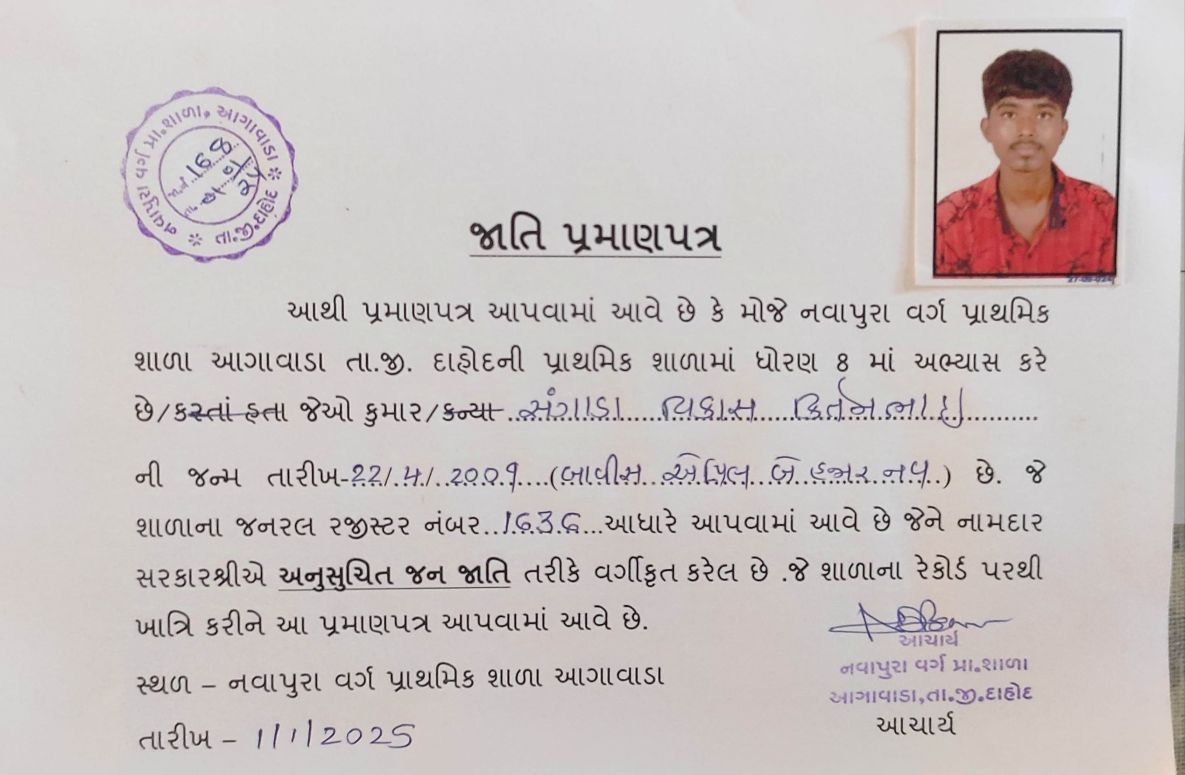 નવાપુરા વર્ગ પ્રા.શાળા, આગાવાડા
તા.જી.દાહોદ
જાતિ પ્રમાણપત્ર
આથી પ્રમાણપત્ર આપવામાં આવે છે કે મોજે નવાપુરા વર્ગ પ્રાથમિક
શાળા આગાવાડા તા.જી. દાહોદની પ્રાથમિક શાળામાં ધોરણ 8 માં અભ્યાસ કરે
છે/કરતાં હતા જેઓ કુમાર/કન્યા સંગાડા વિકાસ
ની જન્મ તારીખ-22/4/2009 (બાવીસ એપ્રિલ બે હજાર નવ) છે. જે
શાળાના જનરલ રજીસ્ટર નંબર 1636 આધારે આપવામાં આવે છે જેને નામદાર
સરકારશ્રીએ અનુસુચિત જન જાતિ તરીકે વર્ગીકૃત કરેલ છે .જે શાળાના રેકોર્ડ પરથી
ખાત્રિ કરીને આ પ્રમાણપત્ર આપવામાં આવે છે.
સ્થળ – નવાપુરા વર્ગ પ્રાથમિક શાળા આગાવાડા
તારીખ – 1/1/2025
આચાર્ય
નવાપુરા વર્ગ પ્રા.શાળા
આગાવાડા,તા.જી.દાહોદ
આચાર્ય